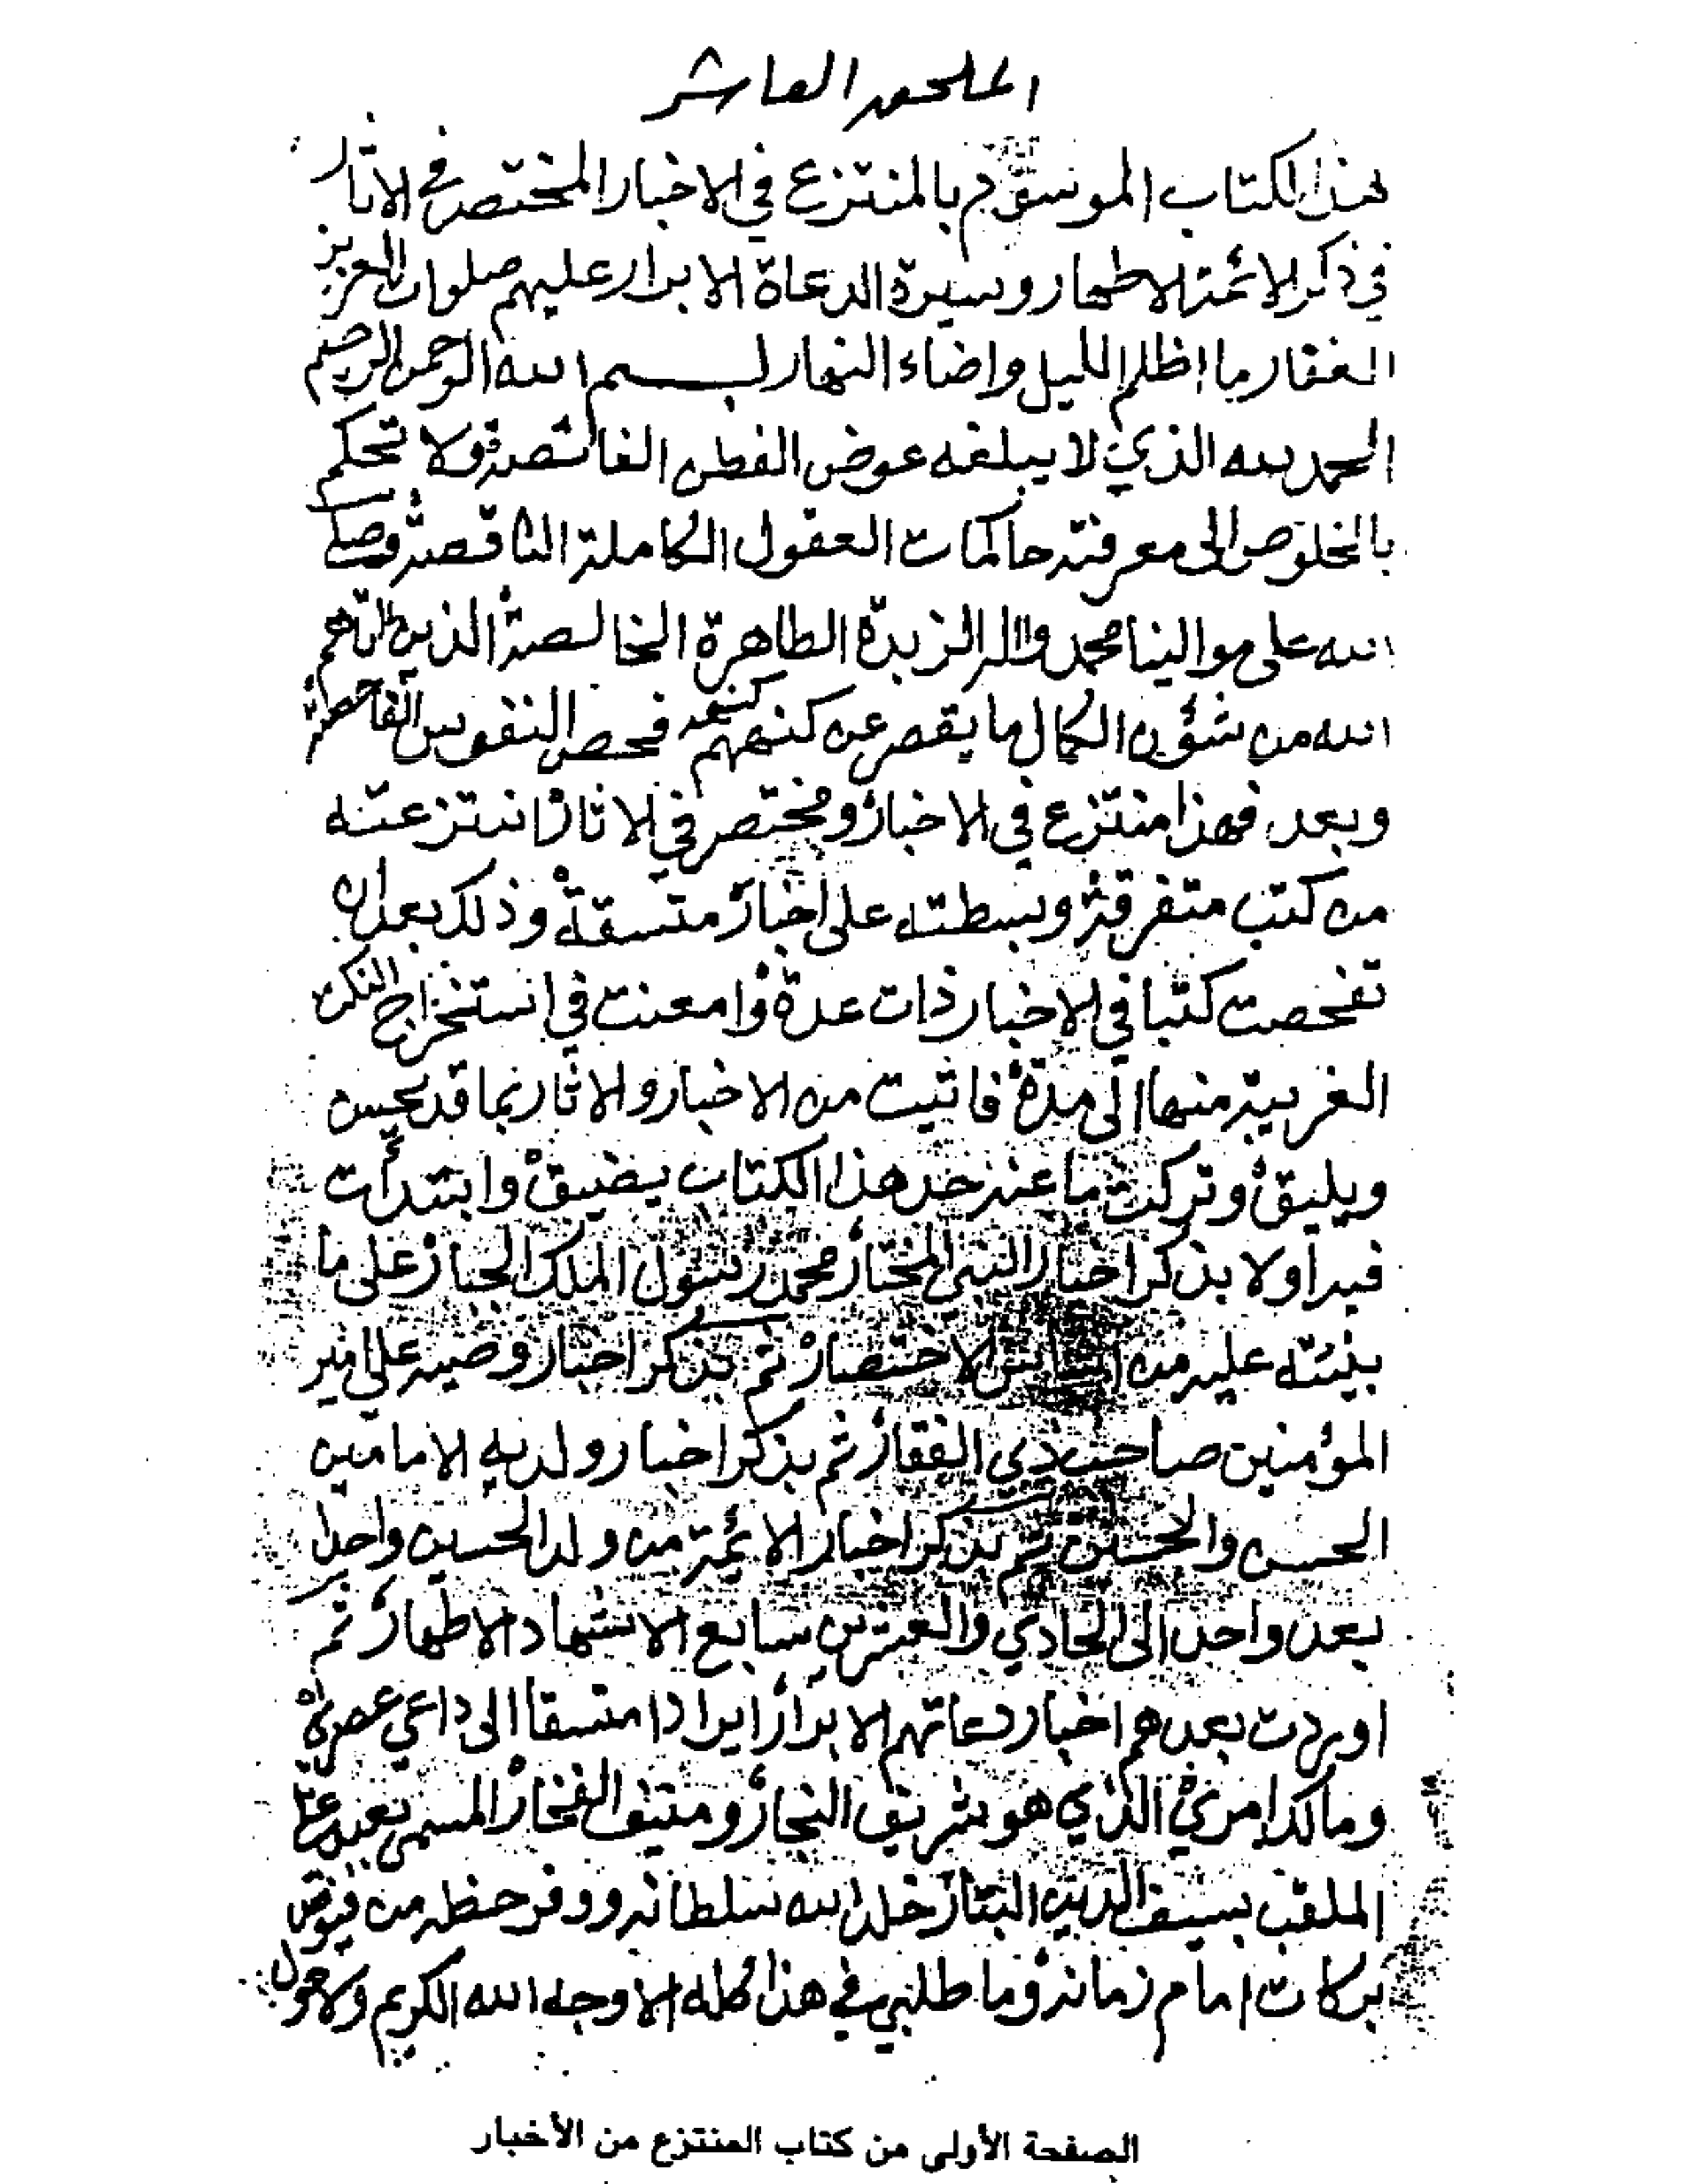 الملحق العاشر
هذا الكتاب الموسوم بالمنتزع في الاخبار المختصر في الاثار
في ذكر الائمة الاطهار وسيرة الدعاة الابرار عليهم صلوات العزيز
الغفار ما اظلم الليل واضاء النهار بسم الله الرحمن الرحيم
الحمد لله الذي لا يبلغه عوض الفطن الغائصة ولا تحكم
بالخلوص الى معرفته حاكمات العقول الكاملة الناقصة وصلى
الله على موالينا محمد واله الزبدة الطاهرة الخالصة الذين اتاهم
الله من شؤن الكمال ما يقصر عن كنههم فحص النفوس الفاحصة
وبعد فهذا منتزع في الاخبار ومختصر في الاثار انتزعته
من كتب متفرقة وبسطته على اخبار متسقة وذلك بعد ان
تفحصت كتبا في الاخبار ذات عدة وامعنت في استخراج النكت
الغريبة منها الى مدة فاتيت من الاخبار والاثار بما قد يحسن
ويليق وتركت ما عنه حد هذا الكتاب يضيق وابتدأت
فيه اولا بذكر اخبار النبي المختار محمد رسول الملك الجبار على ما
بنيته عليه من الاختصار ثم بذكر اخبار وصيه علي امير
المؤمنين صاحب ذي الفقار ثم بذكر اخبار ولديه الامامين
الحسن والحسين ثم بذكر اخبار الائمة من ولد الحسين واحدا
بعد واحد الى الحادي والعشرين سابع الاشهاد الاطهار ثم
اوردت بعدهم اخبار دعاتهم الابرار ايرادا متسقا الى داعي عصري
ومالك امري الذي هو شريف النجار ومنيف الفخار المسمى بعبد علي
الملقب بسيف الدين البتار خلد الله سلطانه ووفر حظه من فيوض
بركات امام زمانه وما طلبي في هذا كله الا وجه الله الكريم ولا حول
الصفحة الأولى من كتاب المنتزع من الأخبار